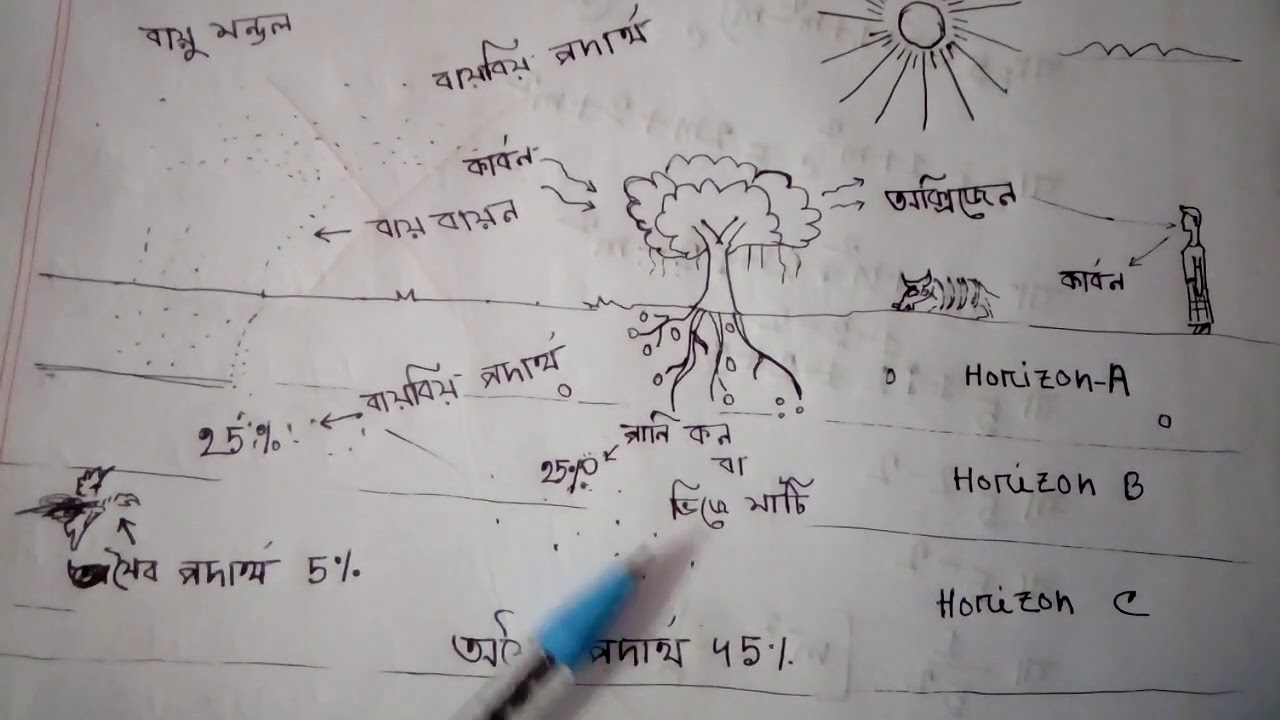 বায়ু মন্ডল
বায়বিয় পদার্থ
কার্বন
অক্সিজেন
বায়ু বায়ন
কার্বন
বায়বিয় পদার্থ
Horizon-A
25%
পানি কনা
25%
বা
ভিজে মাটি
Horizon B
জৈব পদার্থ 5%
Horizon C
পদার্থ 45%